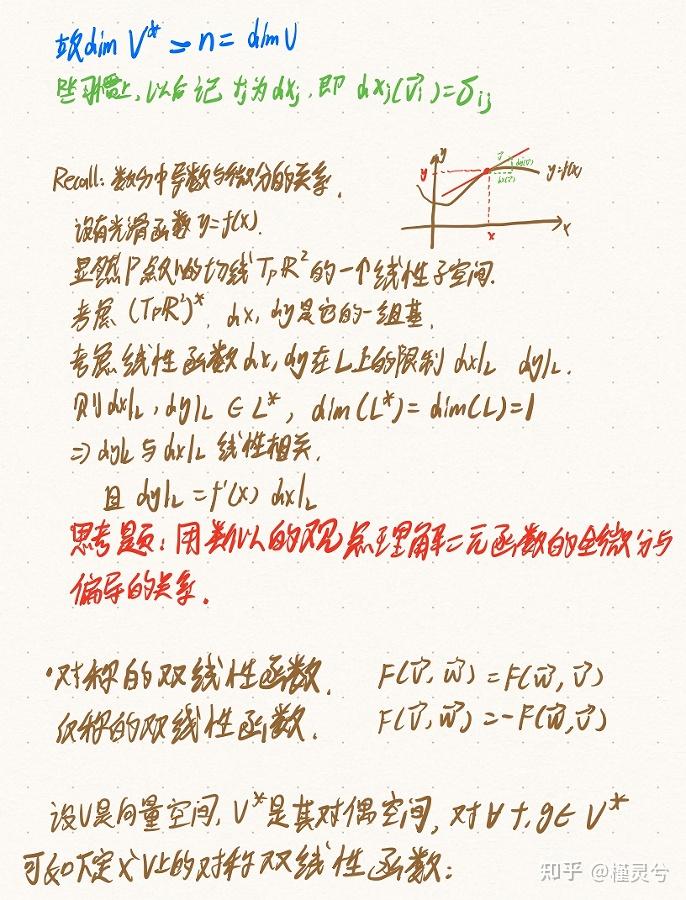 故dim V* = n = dim V
些习惯上,以后记 fj为dxj,即 dxj(v⃗i)=δij
Recall: 数分中导数与微分的关系.
设有光滑函数 y=f(x).
y
y
y=f(x)
x
x
显然P点处的切线 TpR²的一个线性子空间.
考虑 (TpR²)*, dx, dy是它的一组基.
考虑线性函数dx, dy在L上的限制 dx|L dy|L.
则dx|L, dy|L ∈ L*, dim(L*) = dim(L)=1
⇒ dy|L 与 dx|L 线性相关.
且 dy|L = f'(x) dx|L
思考题: 用类似的观点理解二元函数的全微分与
偏导的关系.
·对称的双线性函数. F(v⃗, w⃗) = F(w⃗, v⃗)
反称的双线性函数. F(v⃗, w⃗) = -F(w⃗, v⃗)
设V是向量空间, V*是其对偶空间, 对∀ f, g ∈ V*
可如下定义V上的对称双线性函数:
知乎 @槿灵兮